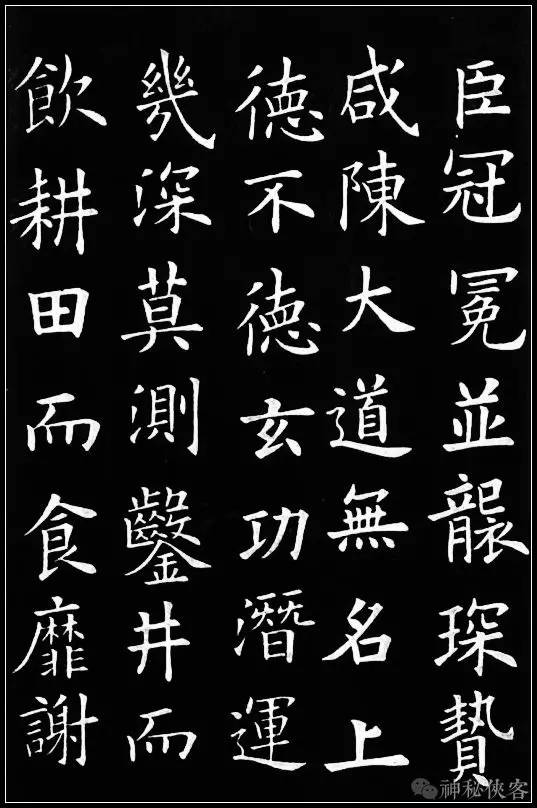 臣冠冕並襲琛贄
咸陳大道無名上
德不德玄功潛運
幾深莫測鑿井而
飲耕田而食靡謝
神秘俠客